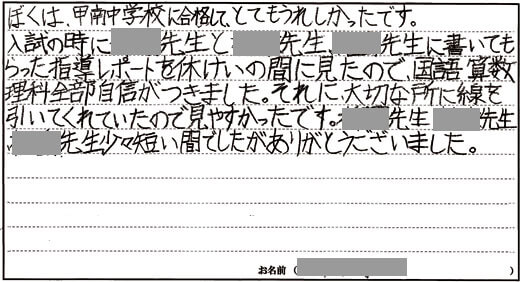 ぼくは、甲南中学校に合格して、とてもうれしかったです。
入試の時に 先生と 先生、 先生に書いても
らった指導レポートを休けいの間に見たので、国語 算数
理科全部自信がつきました。それに大切な所に線を
引いてくれていたので見やすかったです。 先生 先生
先生少々短い間でしたがありがとうございました。
お名前 ( )